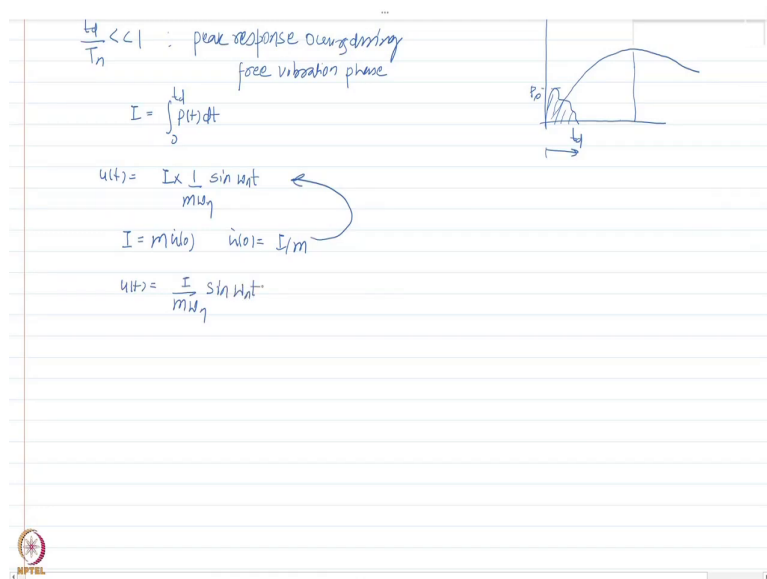 td/Tn << 1 : peak response occurs during
free vibration phase
I = ∫₀^td p(t) dt
u(t) = I x 1/mωn sin ωnt
I = m u̇(0) u̇(0) = I/m
u(t) = I/mωn sin ωnt
po
td
NPTEL